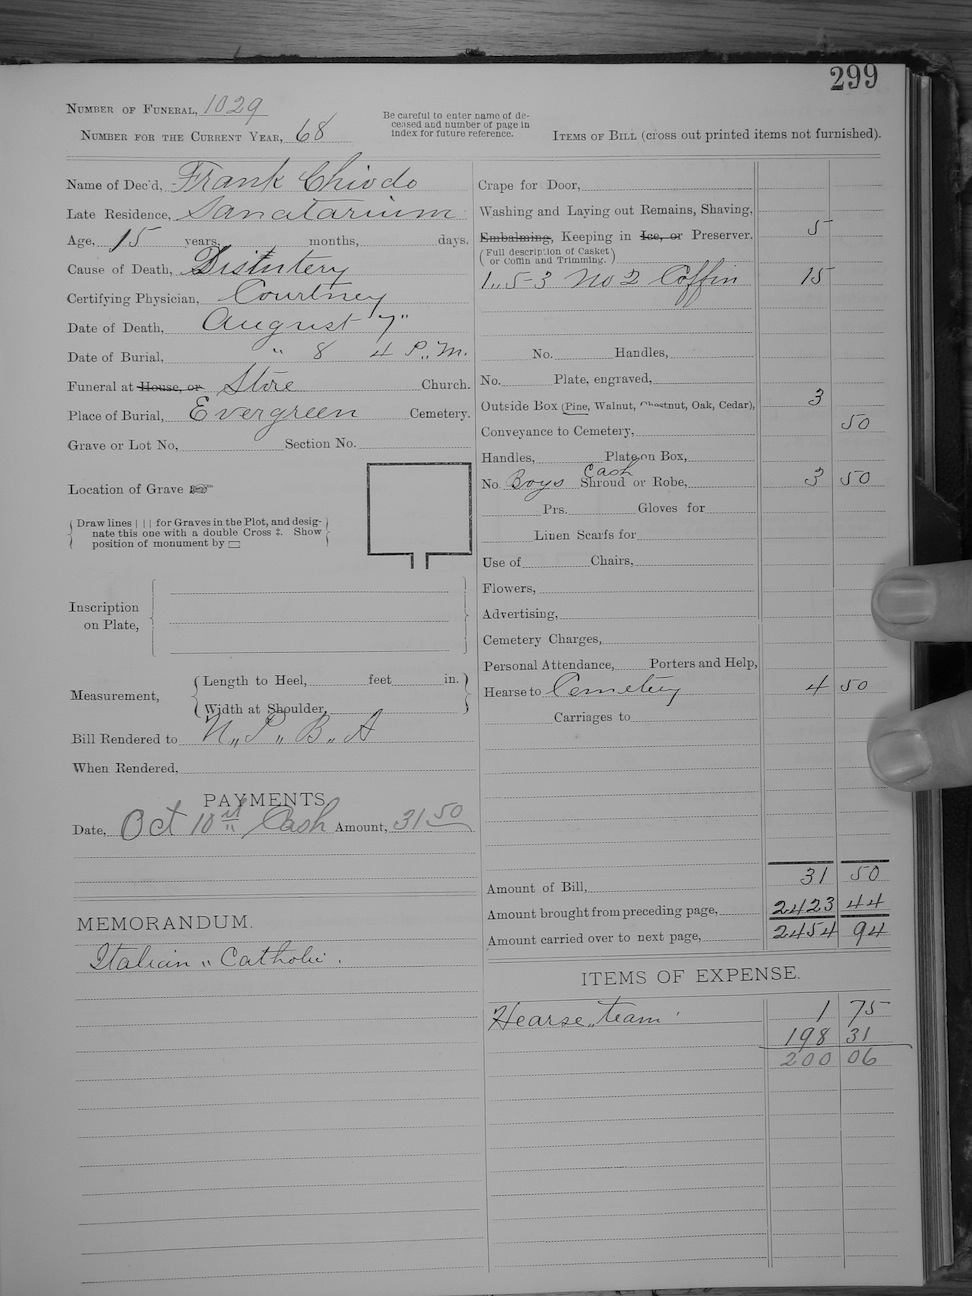 299
Number of Funeral, 1029
Number for the Current Year, 68
Be careful to enter name of de-
ceased and number of page in
index for future reference.
Items of Bill (cross out printed items not furnished).
Name of Dec'd, Frank Chiodo
Late Residence, Sanatarium
Age, 15 years, months, days.
Cause of Death, Disintery
Certifying Physician, Courtney
Date of Death, August 7"
Date of Burial, " 8 4 P.,M.
Funeral at House, or Store Church.
Place of Burial, Evergreen Cemetery.
Grave or Lot No, Section No.
Location of Grave
Draw lines | | | for Graves in the Plot, and desig-
nate this one with a double Cross ‡. Show
position of monument by ▭
Inscription
on Plate,
Measurement,
Length to Heel, feet in.
Width at Shoulder,
Bill Rendered to N,, P,, B,, A
When Rendered,
PAYMENTS
Date, Oct 10 Cash Amount, 31 50
MEMORANDUM.
Italian ,, Catholic .
Crape for Door,
Washing and Laying out Remains, Shaving,
Embalming, Keeping in Ice, or Preserver. 5
(Full description of Casket
or Coffin and Trimming.)
1,, 5-3 No 2 Coffin 15
No. Handles,
No. Plate, engraved,
Outside Box (Pine, Walnut, Chestnut, Oak, Cedar), 3
Conveyance to Cemetery, 50
Handles, Plate on Box,
Cash
No. Boys Shroud or Robe, 3 50
Prs. Gloves for
Linen Scarfs for
Use of Chairs,
Flowers,
Advertising,
Cemetery Charges,
Personal Attendance, Porters and Help,
Hearse to Cemetery 4 50
Carriages to
Amount of Bill, 31 50
Amount brought from preceding page, 2423 44
Amount carried over to next page, 2454 94
ITEMS OF EXPENSE.
Hearse,, team 1 75
198 31
200 06